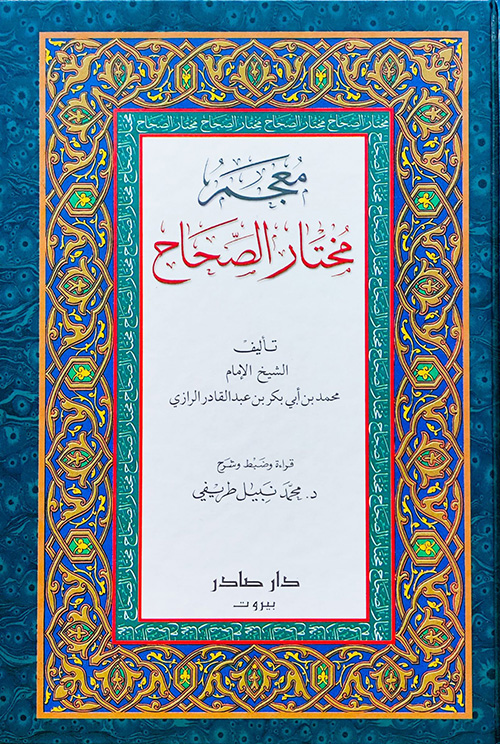 مختار الصحاح مختار الصحاح مختار الصحاح مختار الصحاح
معجم
مختار الصّحاح
تأليف
الشيخ الإمام
محمد بن أبي بكر بن عبد القادر الرازي
قراءة وضبط وشرح
د. محمّد نبيل طريفي
دار صادر
بيروت